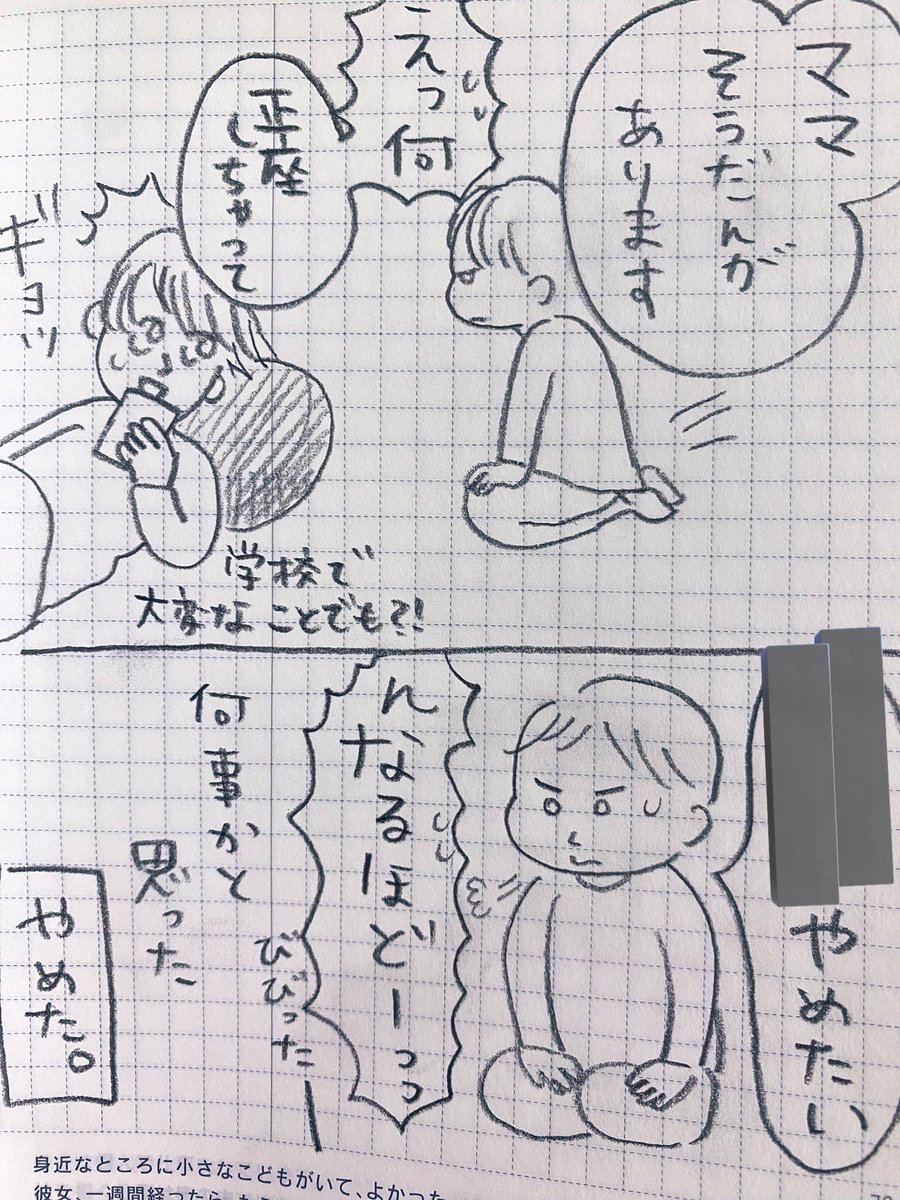 ママ
そうだんが
あります
えっ何
正座
しちゃって
ギョッ
学校で
大変なことでも?!
やめたい
んなるほどーっっ
びびったー
何事かと
思った
やめた。
身近なところに小さなこどもがいて、よかった
彼女、一週間経ったら